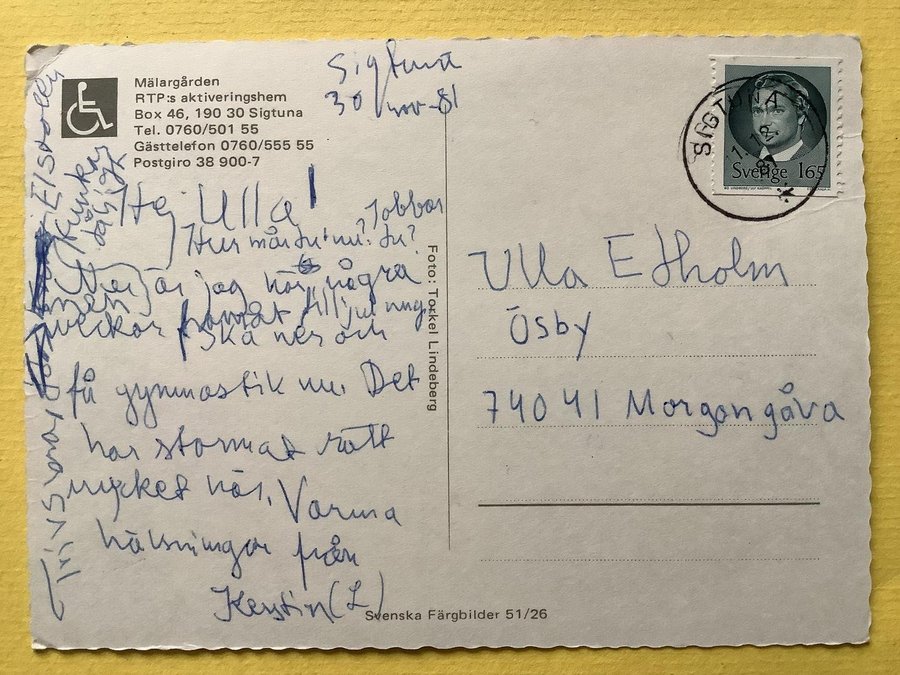 Mälargården
RTP:s aktiveringshem
Box 46, 190 30 Sigtuna
Tel. 0760/501 55
Gästtelefon 0760/555 55
Postgiro 38 900-7
Sigtuna
30 nov -81
Hej Ulla!
Hur mår du nu? Jobbar du?
är jag här några
veckor framåt till jul
ska ner och
få gymnastik nu. Det
har stormat rätt
mycket här. Varma
hälsningar från
Kerstin (L)
Elstolen
funkar
dåligt
Foto: Torkel Lindeberg
Svenska Färgbilder 51/26
SIGTUNA
Sverige 165
Ulla Edholm
Ösby
740 41 Morgongåva